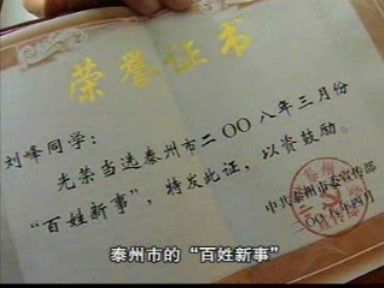 荣誉证书
刘峰同学：
光荣当选泰州市二〇〇八年三月份
“百姓新事”，特发此证，以资鼓励。
中共泰州市委宣传部
二〇〇八年四月
泰州市的“百姓新事”